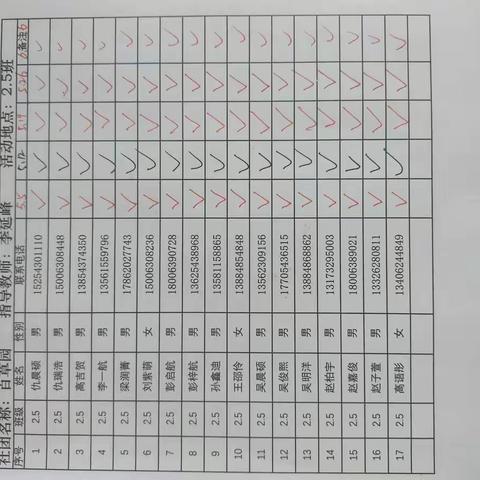 社团名称：百草园 指导教师：李延峰 活动地点：2.5班
序号 班级 姓名 性别 联系电话 5.5 5.12 5.19 5.26 备注
1 2.5 仇晨硕 男 15254301110
2 2.5 仇瑞浩 男 15006308448
3 2.5 高吉贺 男 13854374350
4 2.5 李一航 男 13561559796
5 2.5 梁润菁 男 17862027743
6 2.5 刘紫萌 女 15006308236
7 2.5 彭伯航 男 18006390728
8 2.5 彭梓航 男 13625438968
9 2.5 孙鑫迪 男 13581158865
10 2.5 王邵伶 女 13884854848
11 2.5 吴晨硕 男 13562309156
12 2.5 吴俊熙 男 17705436515
13 2.5 吴明洋 男 13884868862
14 2.5 赵柏宇 男 13173295003
15 2.5 赵嘉俊 男 18006389021
16 2.5 赵子萱 男 13326280811
17 2.5 高语彤 女 13406244849